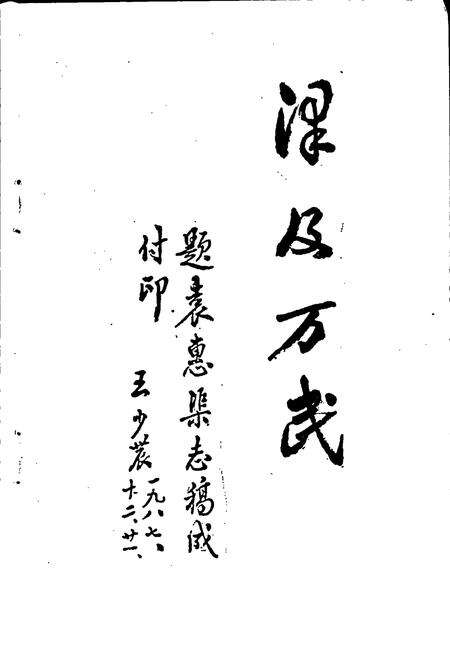 泽及万民
题袁惠渠志稿成
付印
王少农一九八七、
十二、廿一、